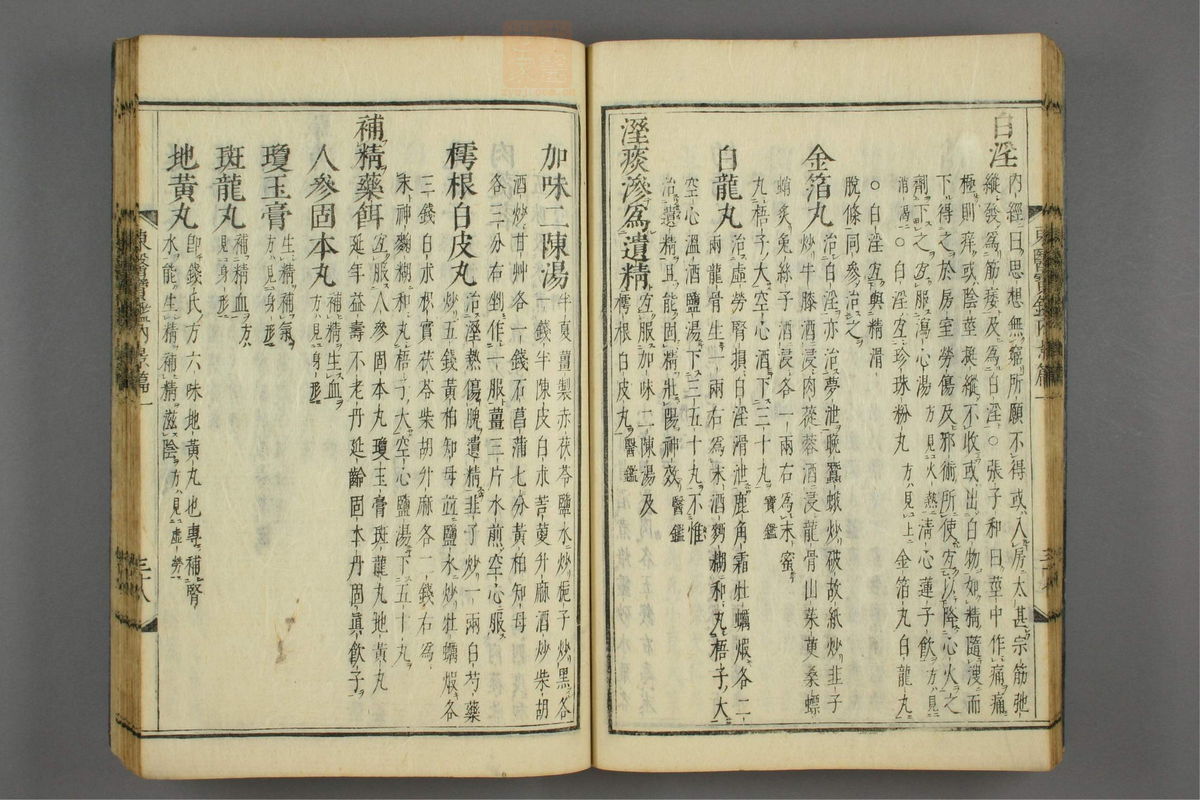 白淫
內經曰思想無窮所願不得或入房太甚宗筋弛
縱發爲筋痿及爲白淫○張子和曰莖中作痛痛
極則痒或陰莖挺縱不收或出白物如精隨溲而
下得之於房室勞傷及邪術所使宜以降心火之
劑下之宜服瀉心湯方見火熱淸心蓮子飮方見
消渴○白淫宜珍珠粉丸方見上金箔丸白龍丸
○白淫宜與精滑
脫條同參治之
金箔丸
治白淫亦治夢泄晩蠶蛾炒破故紙炒韭子
炒牛膝酒浸肉蓯蓉酒浸龍骨山茱萸桑螵
蛸炙兔絲子酒浸各一兩右爲末蜜
丸梧子大空心酒下三十丸寶鑑
白龍丸
治虛勞腎損白淫滑泄鹿角霜牡蠣煆各二
兩龍骨生一兩右爲末酒麪糊和丸梧子大
空心溫酒鹽湯下三五十丸不惟
治遺精且能固精壯陽神效醫鑑
濕痰滲爲遺精
宜服加味二陳湯及
樗根白皮丸醫鑑
加味二陳湯
半夏薑製赤茯苓鹽水炒梔子炒黑各
一錢半陳皮白朮苦蔓升麻酒炒柴胡
酒炒甘艸各一錢石菖蒲七分黃柏知母
各三分右剉作一服薑三片水煎空心服
樗根白皮丸
治濕熱傷脾遺精韭子炒一兩白芍藥
炒五錢黃柏知母並鹽水炒牡蠣煆各
三錢白朮枳實茯苓柴胡升麻各二錢右爲
末神麴糊和丸梧子大空心鹽湯下五十丸
補精藥餌
宜服人參固本丸瓊玉膏斑龍丸地黃丸
延年益壽不老丹延齡固本丹固眞飮子
人參固本丸
補精生血
方見身形
瓊玉膏
生精補氣
方見身形
斑龍丸
補精血方
見身形
地黃丸
卽錢氏方六味地黃丸也專補腎
水能生精補精滋陰方見虛勞
東醫寶鑑內景篇一
三十八